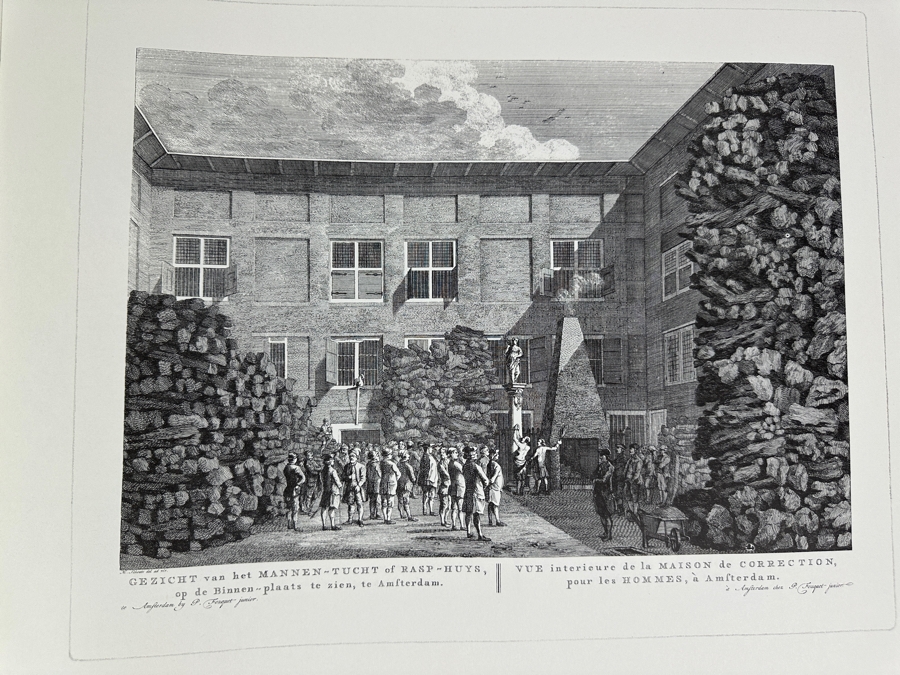 GEZICHT van het MANNEN-TUCHT of RASP-HUYS,
op de Binnen-plaats te zien, te Amſterdam.
te Amſterdam by P. Fouquet junior.
VUE interieure de la MAISON de CORRECTION,
pour les HOMMES, à Amſterdam.
à Amſterdam chez P. Fouquet junior